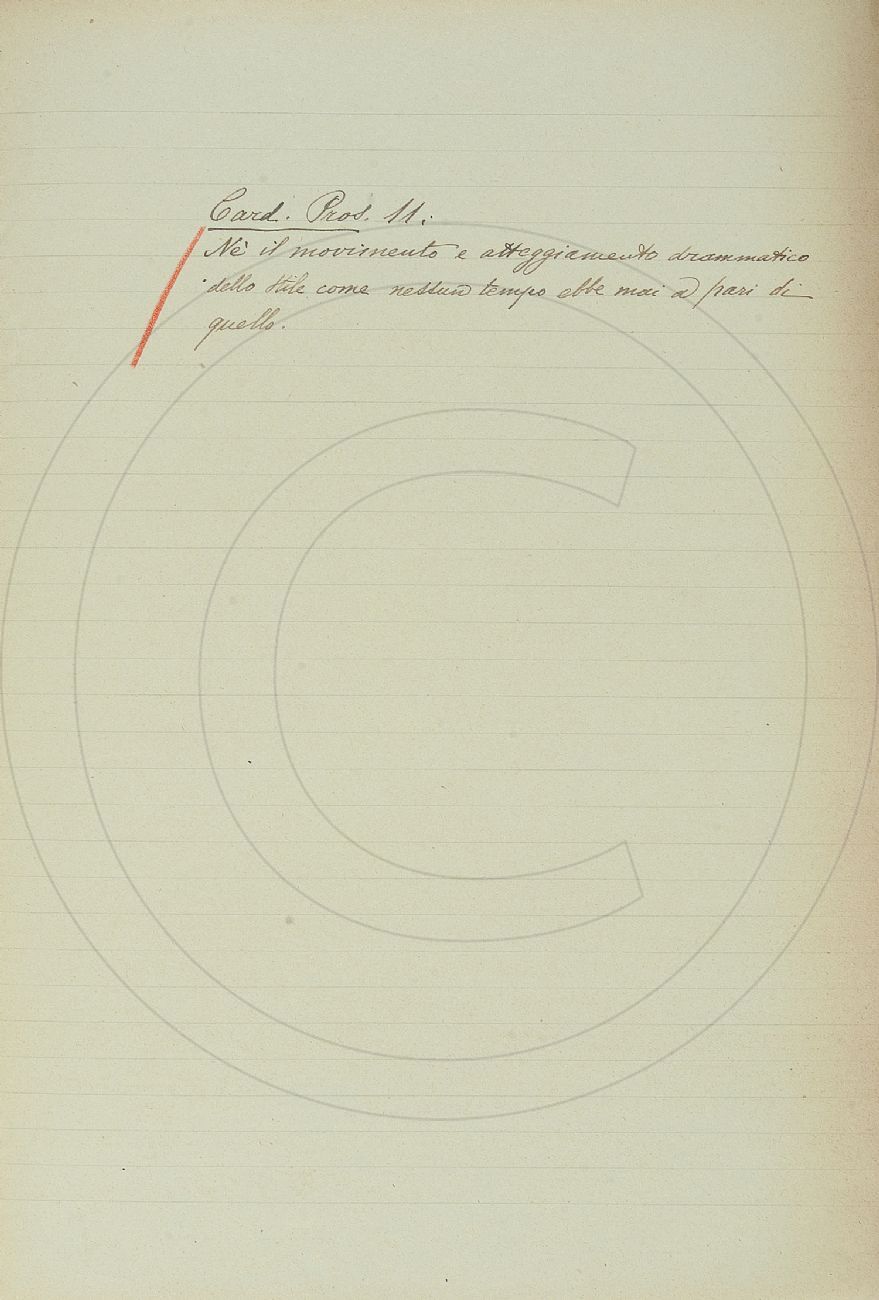 Card. Pros. 11.
Nè il movimento e atteggiamento drammatico
dello stile come nessun tempo ebbe mai a pari di
quello.